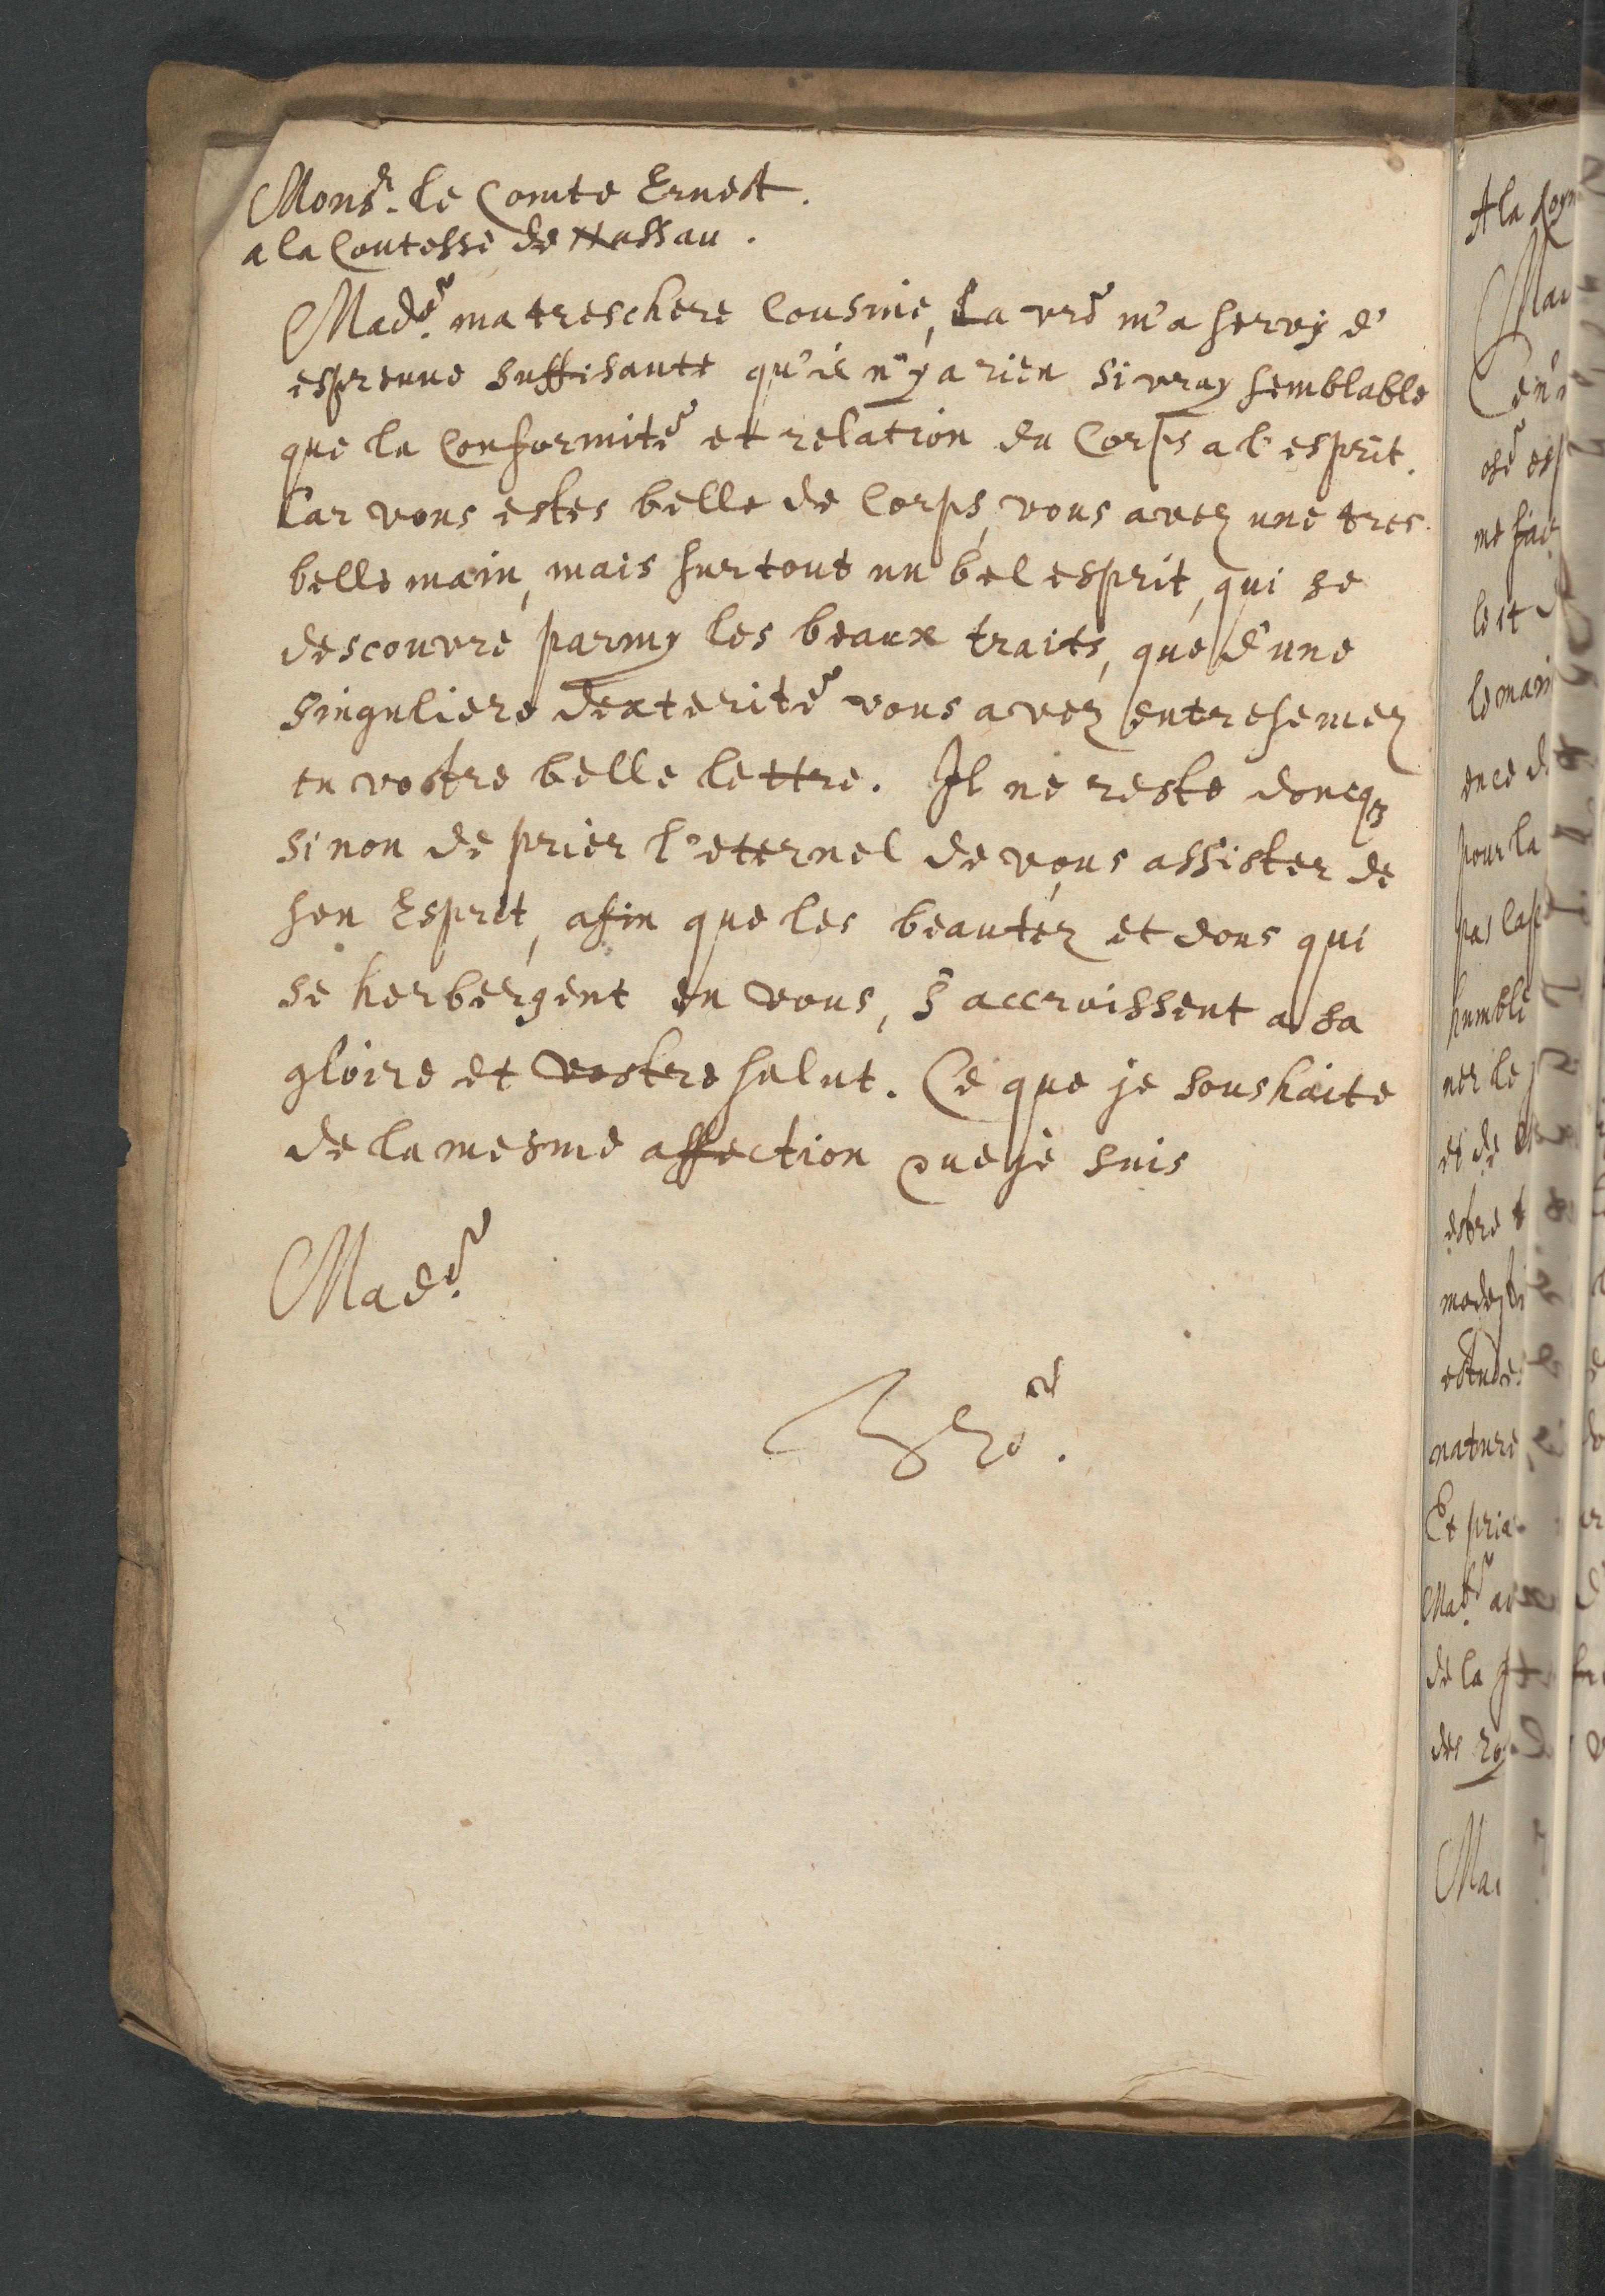 Monsr. le Comte Ernest.
a la Contesse de Nassau.
Made. ma treschere Cousine, La vre m'a servy d'
espreuue suffisante qu'il n'y a rien si vray semblable
que la Conformité et relation du Corps a l'esprit.
Car vous estes belle de Corps, vous avez une tres
belle main, mais surtout un bel esprit, qui se
descouvre parmy les beaux traits, que d'une
singuliere dexterité vous avez entresemez
en vostre belle lettre. Il ne reste doncqz
sinon de prier l'eternel de vous assister de
son Esprit, afin que les beautez et dons qui
se herbergent en vous, s'accroissent a sa
gloire et vostre salut. Ce que je soushaite
de la mesme affection que je suis
Made.
A la
me
le main
pour la
humble
ner le
et de
nature
Et
de la
des